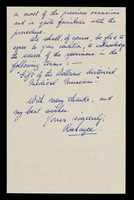 on most of the previous occasions
and is quite familiar with the
procedure.
We shall, of course, be glad to
agree to your condition, to acknowledge
the source of the specimens in the
following terms :—
"Gift of the Wellcome Historical
Medical Museum."
With many thanks, and
my best wishes
Yours sincerely,